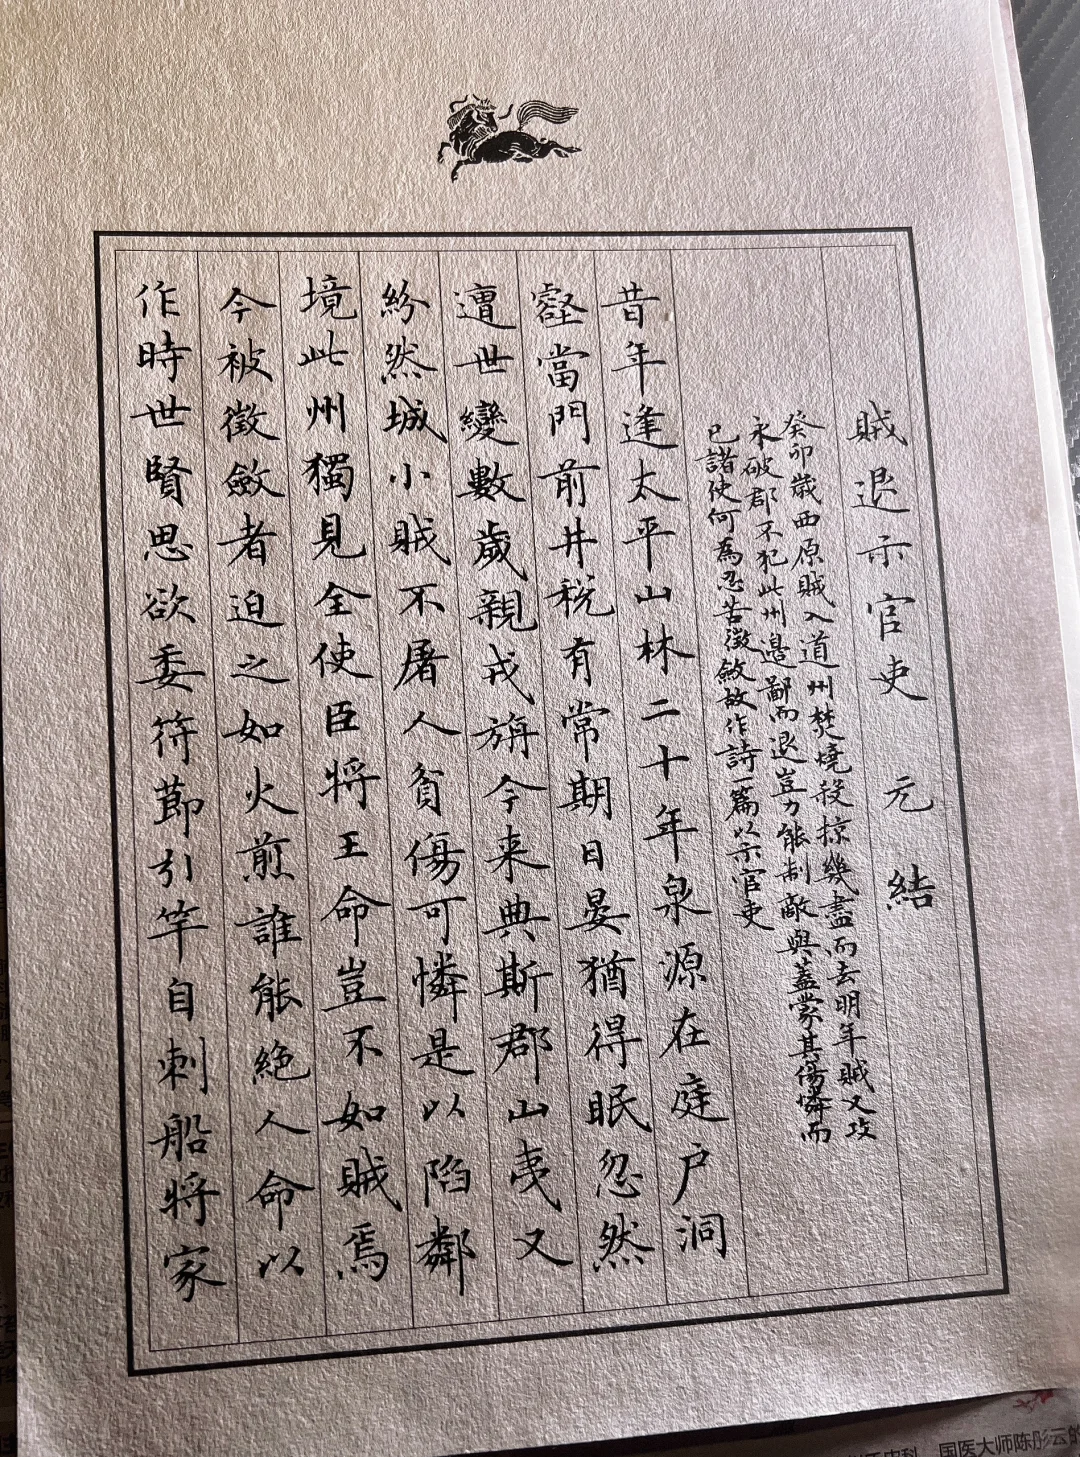 賊退示官吏 元結
癸卯歲西原賊入道州焚燒殺掠幾盡而去明年賊又攻
永破郡不犯此州邊鄙而退豈力能制敵與蓋蒙其傷憐而
已諸使何為忍苦徵斂故作詩一篇以示官吏
昔年逢太平山林二十年泉源在庭户洞
壑當門前井税有常期日晏猶得眠忽然
遭世變數歲親戎旃今来典斯郡山夷又
紛然城小賊不屠人貧傷可憐是以陷鄰
境此州獨見全使臣将王命豈不如賊焉
今被徵斂者迫之如火煎誰能絶人命以
作時世賢思欲委符節引竿自刺船将家
国医大师陈彤云的